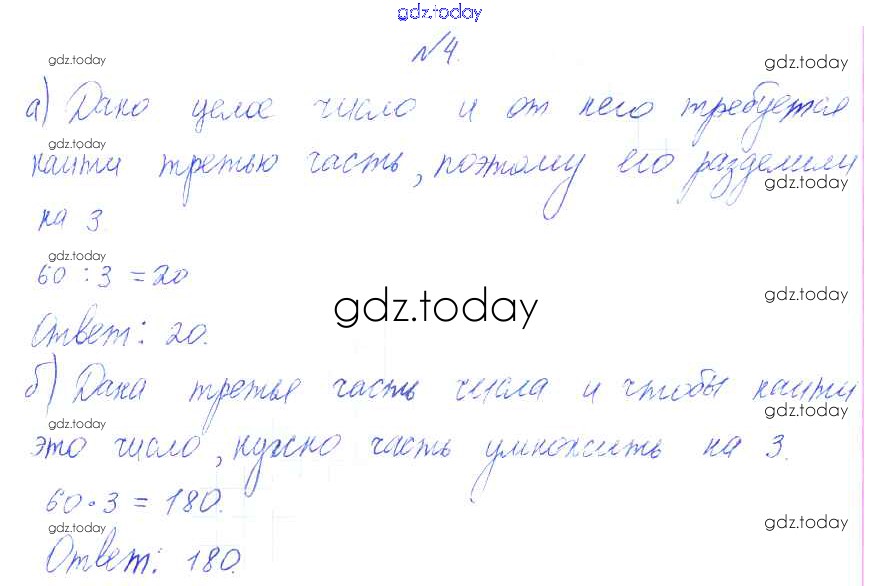 gdz.today
№4.
gdz.today gdz.today
а) Дано целое число и от него требуется
gdz.today
найти третью часть, поэтому его разделили
gdz.today
на 3.
gdz.today
60 : 3 = 20
gdz.today gdz.today
Ответ: 20.
б) Дана третья часть числа и чтобы найти
gdz.today gdz.today
это число, нужно часть умножить на 3.
60 · 3 = 180.
gdz.today gdz.today
Ответ: 180.